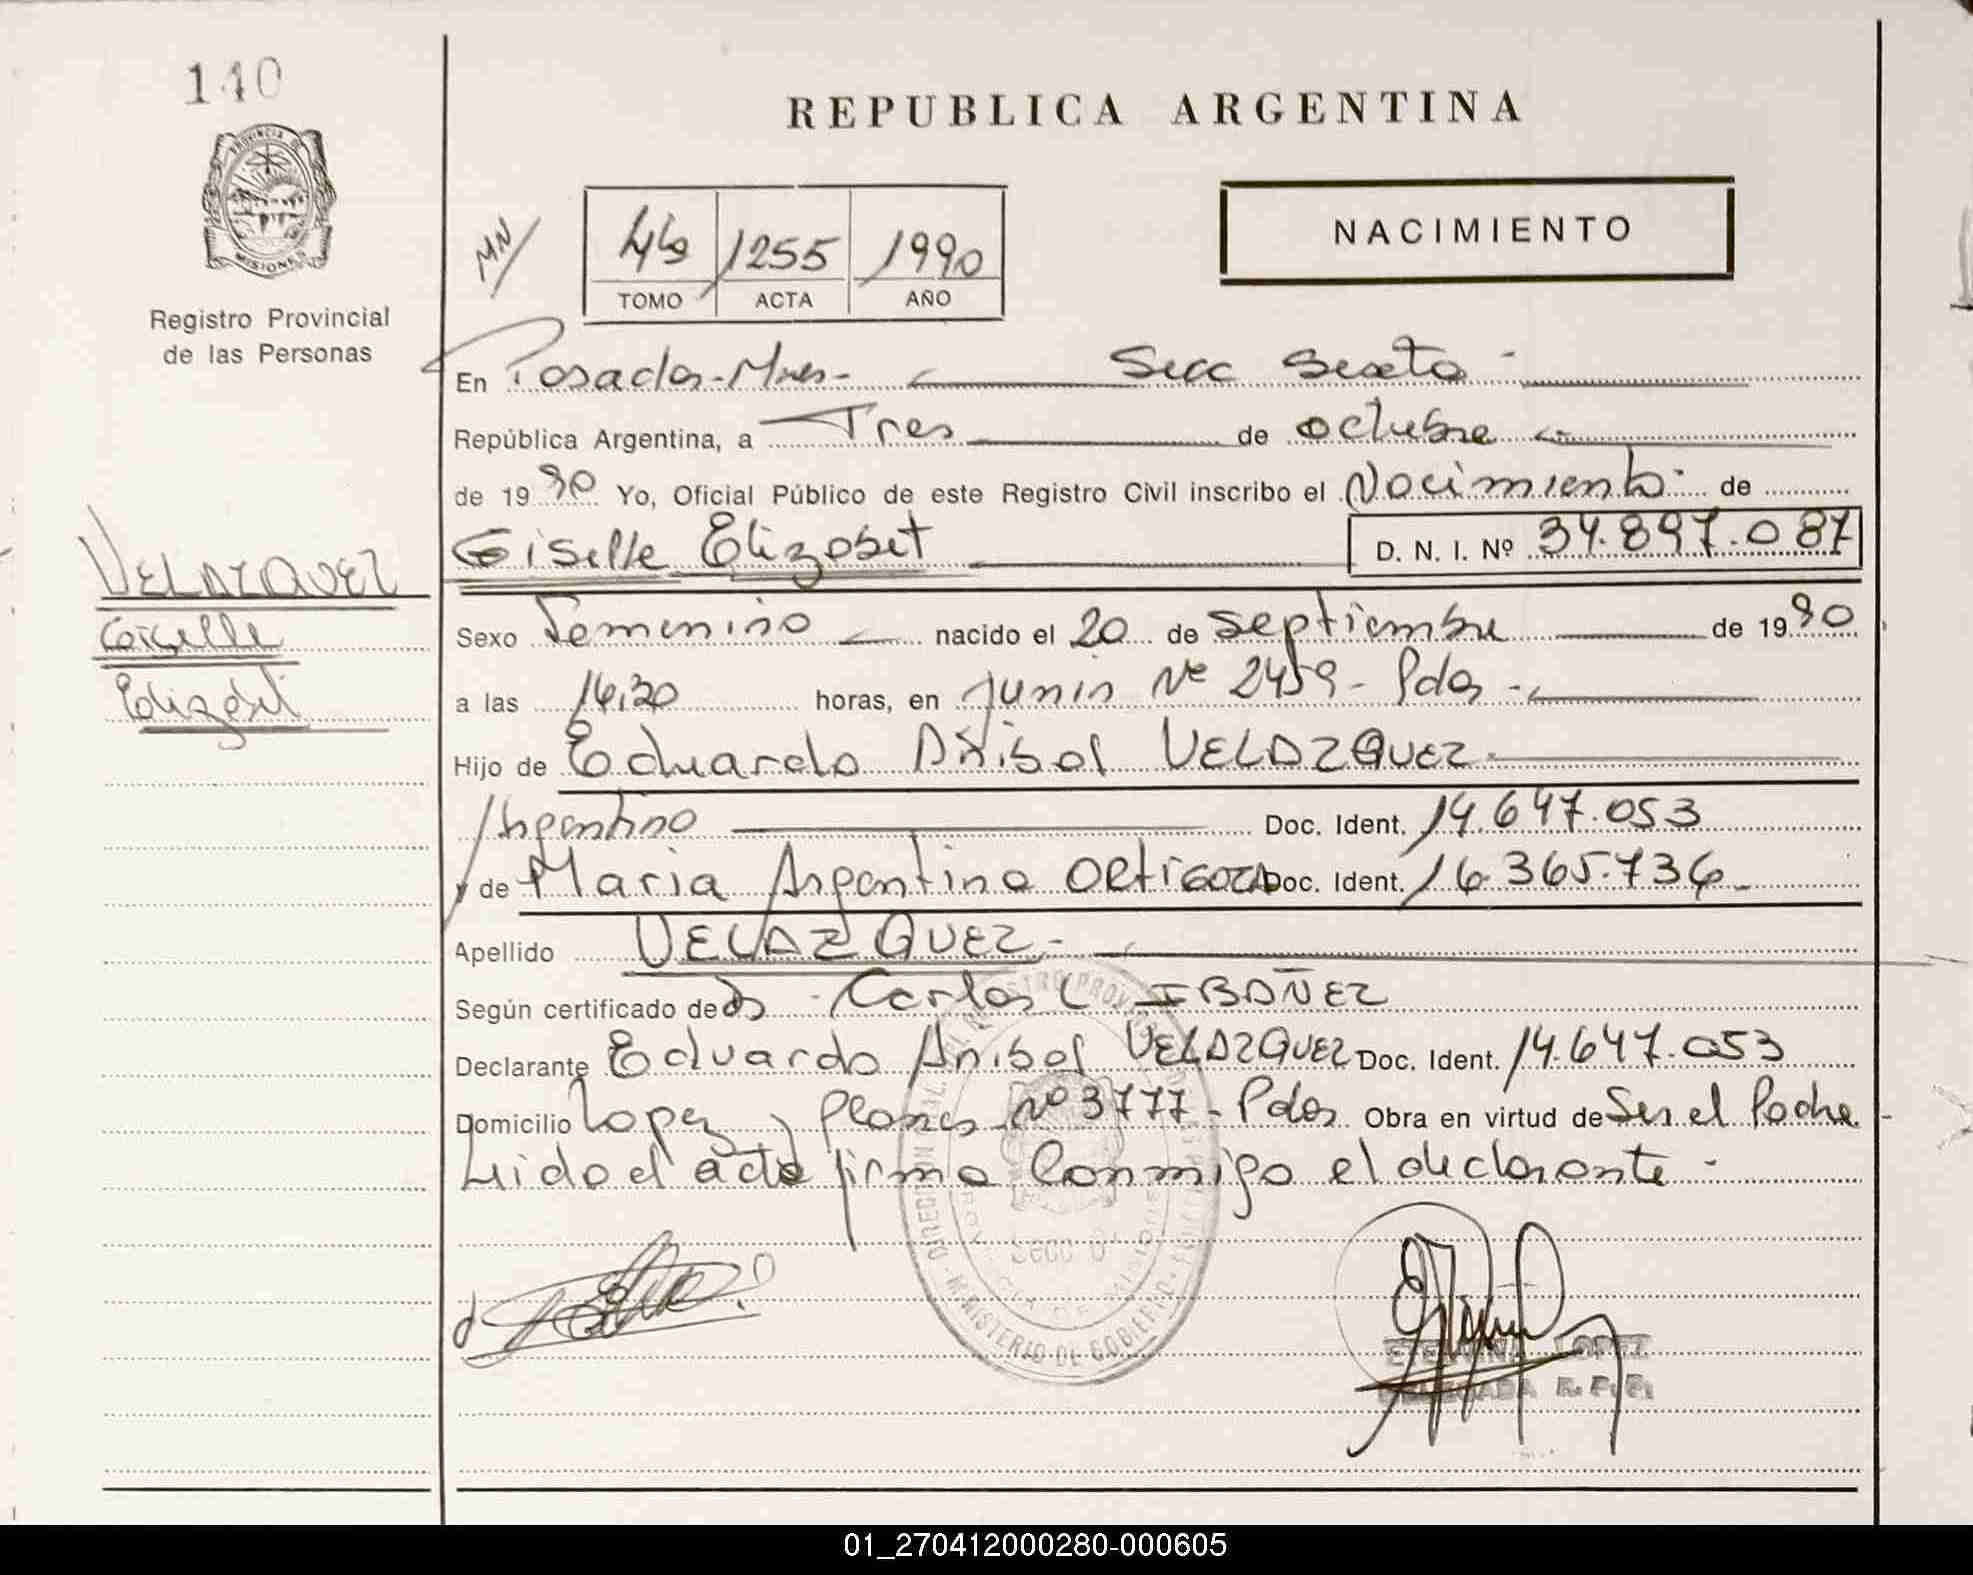 140
PROVINCIA DE
MISIONES
Registro Provincial
de las Personas
VELAZQUEZ
Giselle
Elizabet
REPUBLICA ARGENTINA
MN/
1255 1990
TOMO ACTA AÑO
NACIMIENTO
En Posadas - Mnes - Secc Sexta -
República Argentina, a Tres de octubre
de 1990 Yo, Oficial Público de este Registro Civil inscribo el Nacimiento de
Giselle Elizabet D. N. I. Nº 34.897.087
Sexo Femenino nacido el 20 de septiembre de 1990
a las 14,30 horas, en Junin Nº 2459 - Pdas -
Hijo de Eduardo Anibal VELAZQUEZ
Argentino Doc. Ident. 14.647.053
y de Maria Argentina ORTIGOZA Doc. Ident. 16.365.736
Apellido VELAZQUEZ -
Según certificado de Carlos C IBAÑEZ
Declarante Eduardo Anibal VELAZQUEZ Doc. Ident. 14.647.053
Domicilio Lopez y Planes Nº 3777 - Pdas Obra en virtud de Ser el Padre
Leido el acta firma conmigo el declarante -
Secc 6ª
MINISTERIO DE GOBIERNO
ETELVINA LOPEZ
DELEGADA R. P. P.
01_270412000280-000605